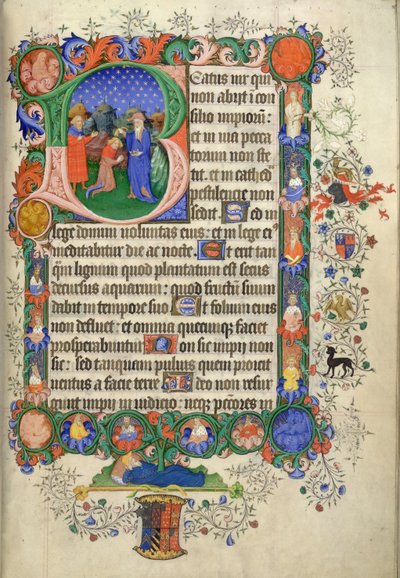 Beatus uir qui
non abijt i con
silio impiorum:
et in uia pecca
torum non ste
tit. et in cathed
pestilencie non
sedit. Sed in
lege domini uoluntas eius: et in lege ei'
meditabitur die ac nocte. Et erit tan
qm lignum quod plantatum est secus
decursus aquarum: quod fructum suum
dabit in tempore suo Et folium eius
non defluet: et omnia quecumque faciet
prosperabuntur Non sic impij non
sic: sed tanquam puluis quem proicit
uentus a facie terre Ideo non resur
gunt impij in iudicio: neque peccores in